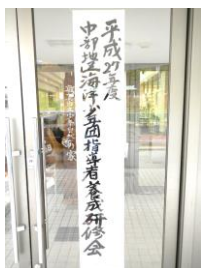 平成27年度
中部地区海洋少年団指導者養成研修会